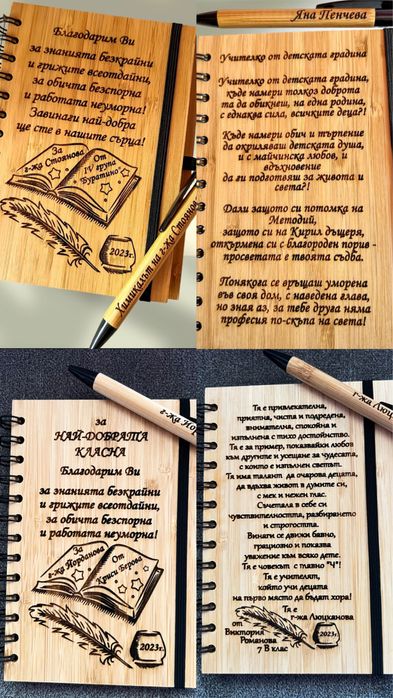 Благодарим Ви
за знанията безкрайни
и грижите всеотдайни,
за обичта безспорна
и работата неуморна!
Завинаги най-добра
ще сте в нашите сърца!
За
г-жа Стоянова
От
IV група
"Буратино"
2023г.
Химикалът на г-жа Стоянова
Яна Пенчева
Учителко от детската градина
Учителко от детската градина,
къде намери толкоз доброта
та да обикнеш, на една родина,
с еднаква сила, всичките деца?!
Къде намери обич и търпение
да окриляваш детската душа,
и с майчинска любов, и
вдъхновение
да ги подготвяш за живота и
света?!
Дали защото си потомка на
Методий,
защото си на Кирил дъщеря,
откърмена си с благороден порив -
просветата е твоята съдба.
Понякога се връщаш уморена
във своя дом, с наведена глава,
но зная аз, за тебе друга няма
професия по-скъпа на света!
г-жа Йор
за
НАЙ-ДОБРАТА
КЛАСНА
Благодарим Ви
за знанията безкрайни
и грижите всеотдайни,
за обичта безспорна
и работата неуморна!
За
г-жа Йорданова
От
Криси Берова
2023г.
г-жа Люцк
Тя е привлекателна,
приятна, чиста и подредена,
внимателна, спокойна и
изпълнена с тихо достойнство.
Тя е за пример, показвайки любов
към другите и усещане за чудесата,
с които е изпълнен светът.
Тя има талант да очарова децата,
да вдъхва живот в думите си,
с мек и нежен глас.
Съчетала в себе си
чувствителността, разбирането
и строгостта.
Винаги се движи бавно,
грациозно и показва
уважение към всяко дете.
Тя е човекът с главно "Ч"!
Тя е учителят,
който учи децата
на първо място да бъдат хора!
Тя е
г-жа Люцканова
от
Виктория
Романова
7 В клас
2023г.